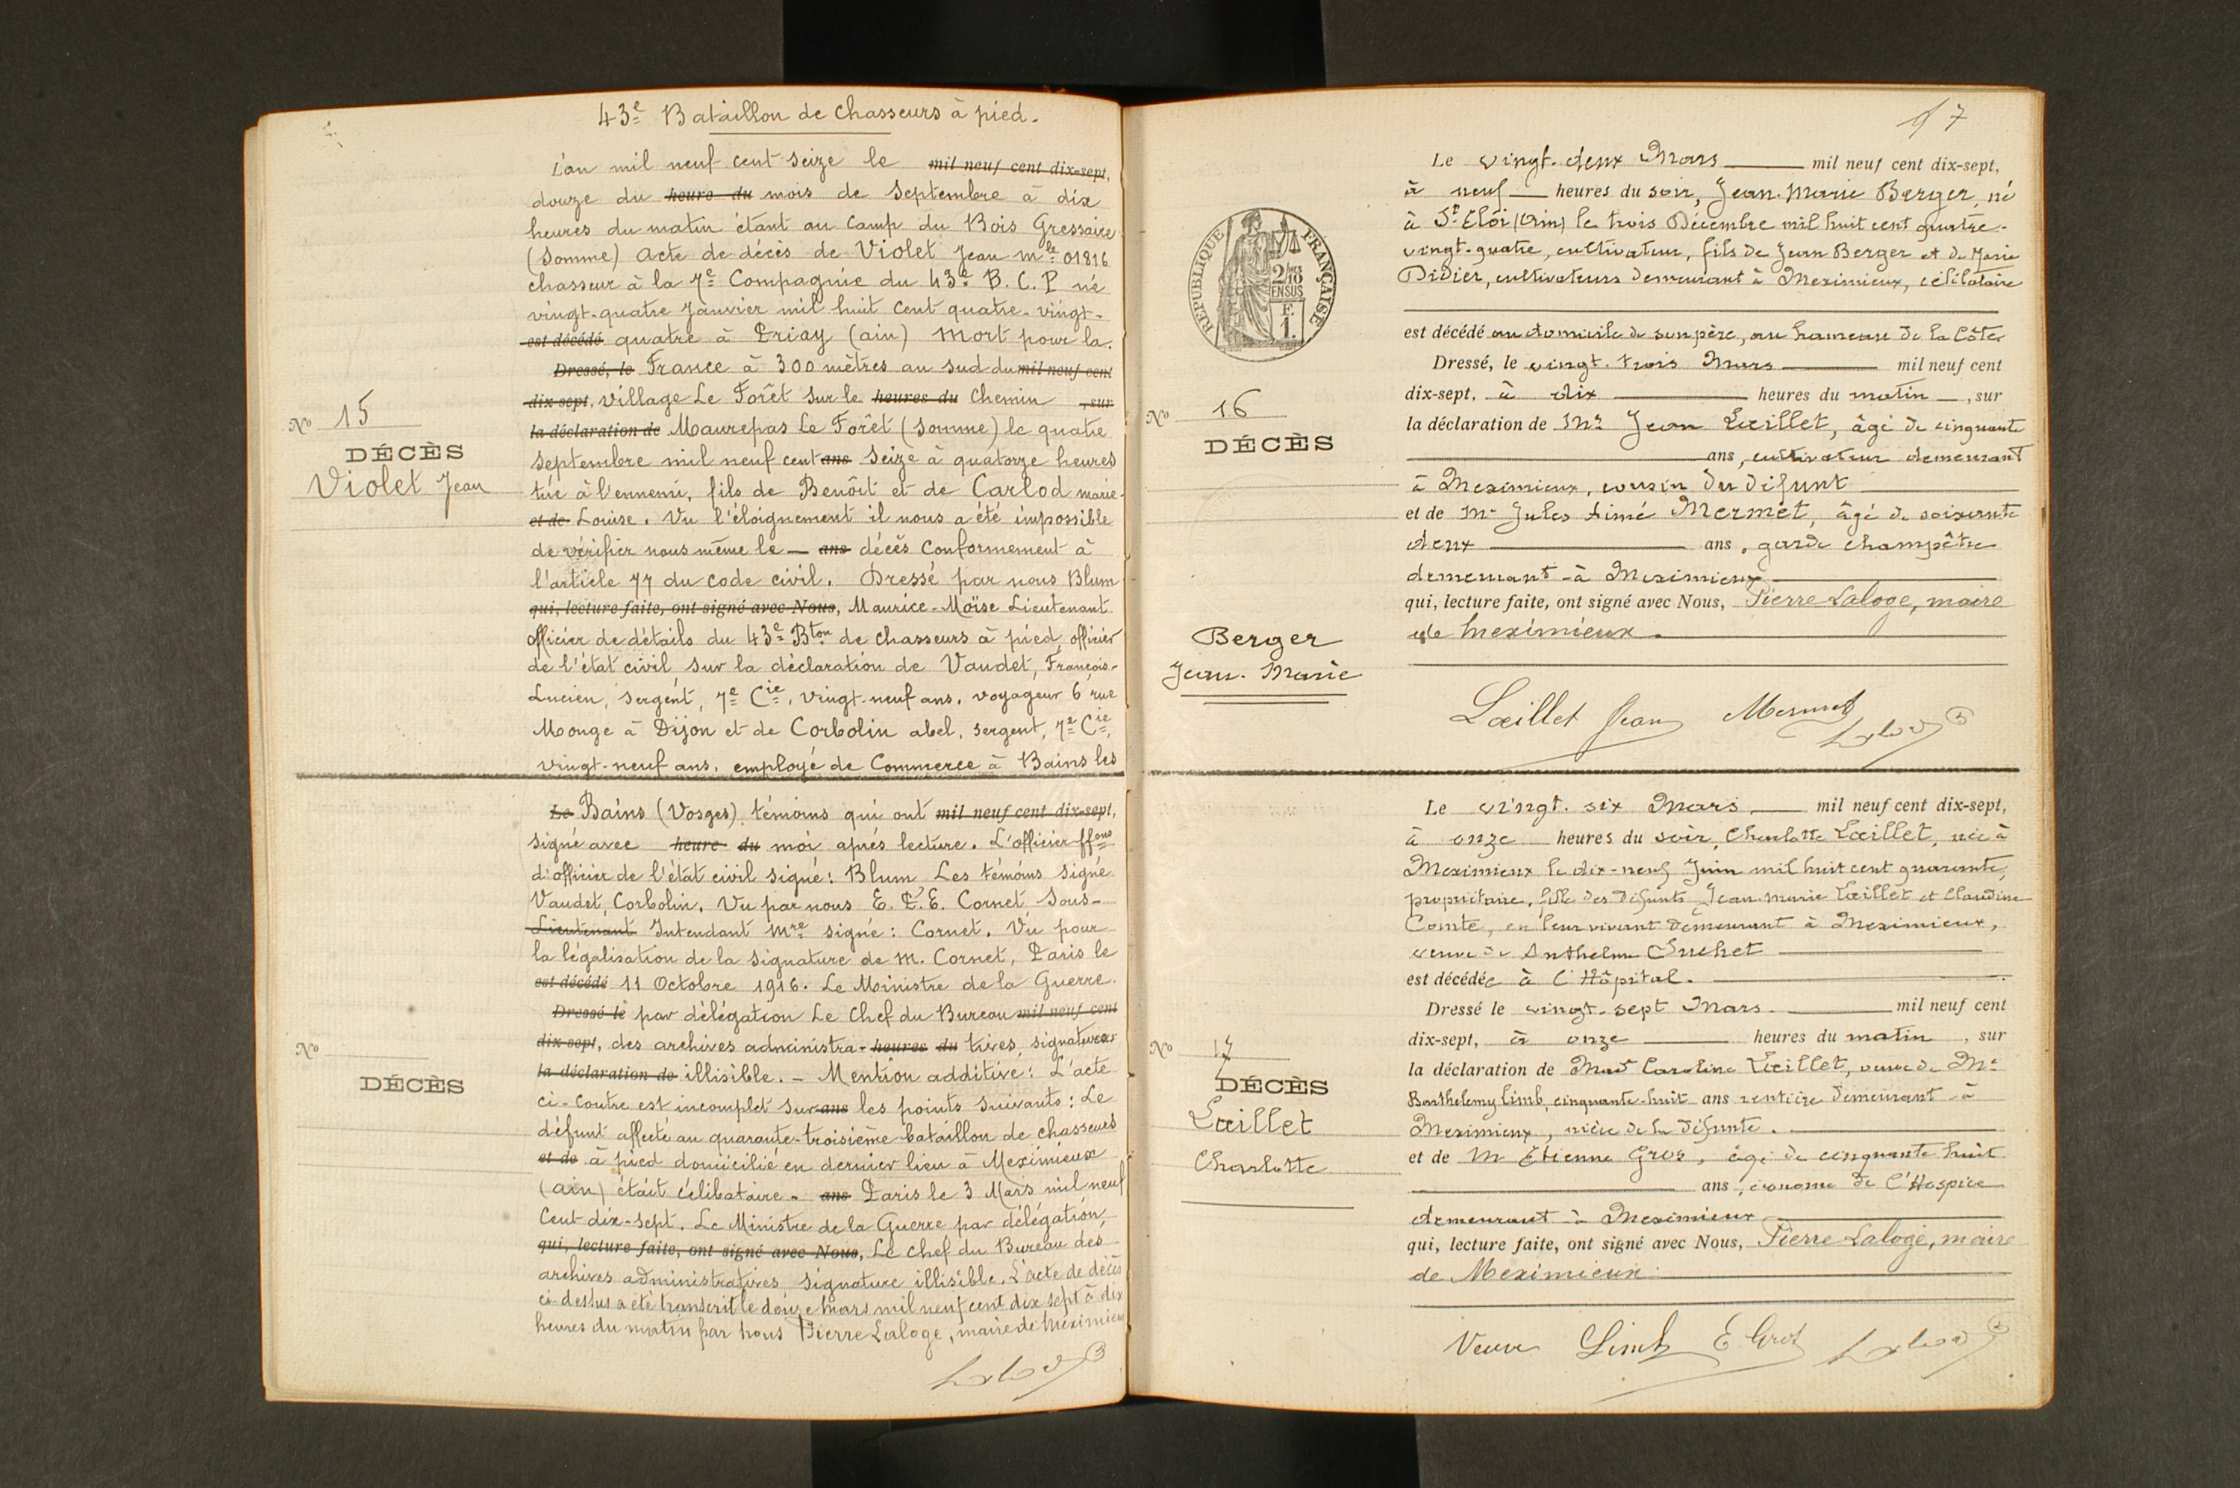 43e Bataillon de chasseurs à pied.
L'an mil neuf cent seize le mil neuf cent dix-sept,
douze du heure du mois de septembre à dix
heures du matin étant au camp du Bois Gressaire
(Somme) acte de décès de Violet Jean mle 01816
chasseur à la 7e Compagnie du 43e B. C. P né
vingt-quatre Janvier mil huit cent quatre-vingt-
est décédé quatre à Priay (ain) mort pour la
Dressé, le France à 300 mètres au sud du mil neuf cent
dix-sept, village Le Forêt sur le heures du chemin , sur
la déclaration de Maurepas Le Forêt (Somme) le quatre
septembre mil neuf cent ans seize à quatorze heures
tué à l'ennemi, fils de Benôit et de Carlod marie-
et de Louise. Vu l'éloignement il nous a été impossible
de vérifier nous même le — ans décès conformement à
l'article 77 du code civil. Dressé par nous Blum
qui, lecture faite, ont signé avec Nous, Maurice-Moïse Lieutenant
officier de détails du 43e Bton de chasseurs à pied, officier
de l'état civil, sur la déclaration de Vaudet, François-
Lucien, sergent, 7e Cie, vingt-neuf ans, voyageur 6 rue
Monge à Dijon et de Corbolin abel, sergent, 7e Cie,
vingt-neuf ans, employé de Commerce à Bains les
No 15
DÉCÈS
Violet Jean
Le Bains (Vosges) témoins qui ont mil neuf cent dix-sept,
signé avec heure du moi après lecture. L'officier ffons
d'officier de l'état civil signé: Blum Les témoins signé
Vaudet, Corbolin. Vu par nous E. P. E. Cornet Sous-
Lieutenant Intendant Mre signé: Cornet. Vu pour
la légalisation de la signature de M. Cornet, Paris le
est décédé 11 Octobre 1916. Le Ministre de la Guerre.
Dressé le par délégation Le Chef du Bureau mil neuf cent
dix-sept, des archives administra- heures du tives, signature sur
la déclaration de illisible. - Mention additive: L'acte
ci-contre est incomplet sur ans les points suivants: Le
défunt affecté au quarante-troisième bataillon de chasseurs
et de à pied domicilié en dernier lieu à Meximieux
(ain) était célibataire. ans Paris le 3 Mars mil neuf
Cent dix-sept. Le Ministre de la Guerre par délégation,
qui, lecture faite, ont signé avec Nous, Le chef du Bureau des
archives administratives signature illisible. L'acte de décès
ci-dessus a été transcrit le douze mars mil neuf cent dix sept à dix
heures du matin par nous Pierre Laloge, maire de Meximieux
No
DÉCÈS
17
Le vingt-deux Mars mil neuf cent dix-sept,
à neuf heures du soir, Jean-Marie Berger, né
à St Elói (Ain) le trois Décembre mil huit cent quatre-
vingt-quatre, cultivateur, fils de Jean Berger et de Marie
Didier, cultivateurs demeurant à Meximieux, célibataire
est décédé au domicile de son père, au hameau de la Côte.
Dressé, le vingt-trois Mars mil neuf cent
dix-sept, à dix heures du matin, sur
la déclaration de Mr Jean Lœillet, âgé de cinquante
ans, cultivateur demeurant
à Meximieux, cousin du défunt
et de Mr Jules Aimé Mermet, âgé de soixante
deux ans, garde champêtre
demeurant à Meximieux
qui, lecture faite, ont signé avec Nous, Pierre Laloge, maire
de Meximieux.
RÉPUBLIQUE FRANÇAISE
2/10 EN SUS
F. 1.
No 16
DÉCÈS
Berger
Jean-Marie
Lœillet Jean Mermet
Le vingt-six Mars mil neuf cent dix-sept,
à onze heures du soir, Charlotte Lœillet, née à
Meximieux le dix-neuf Juin mil huit cent quarante,
propriétaire, fille des défunts Jean-Marie Lœillet et Claudine
Comte, en leur vivant demeurant à Meximieux,
veuve de Anthelme Suchet
est décédée à l'Hôpital.
Dressé le vingt-sept Mars mil neuf cent
dix-sept, à onze heures du matin, sur
la déclaration de Made Caroline Lœillet, veuve de Mr
Barthelemy Limb, cinquante-huit ans rentière demeurant à
Meximieux, nièce de la défunte.
et de Mr Etienne Gros, âgé de cinquante huit
ans, économe de l'Hospice
demeurant à Meximieux
qui, lecture faite, ont signé avec Nous, Pierre Laloge, maire
de Meximieux.
No 17
DÉCÈS
Lœillet
Charlotte
Veuve Limb E Gros